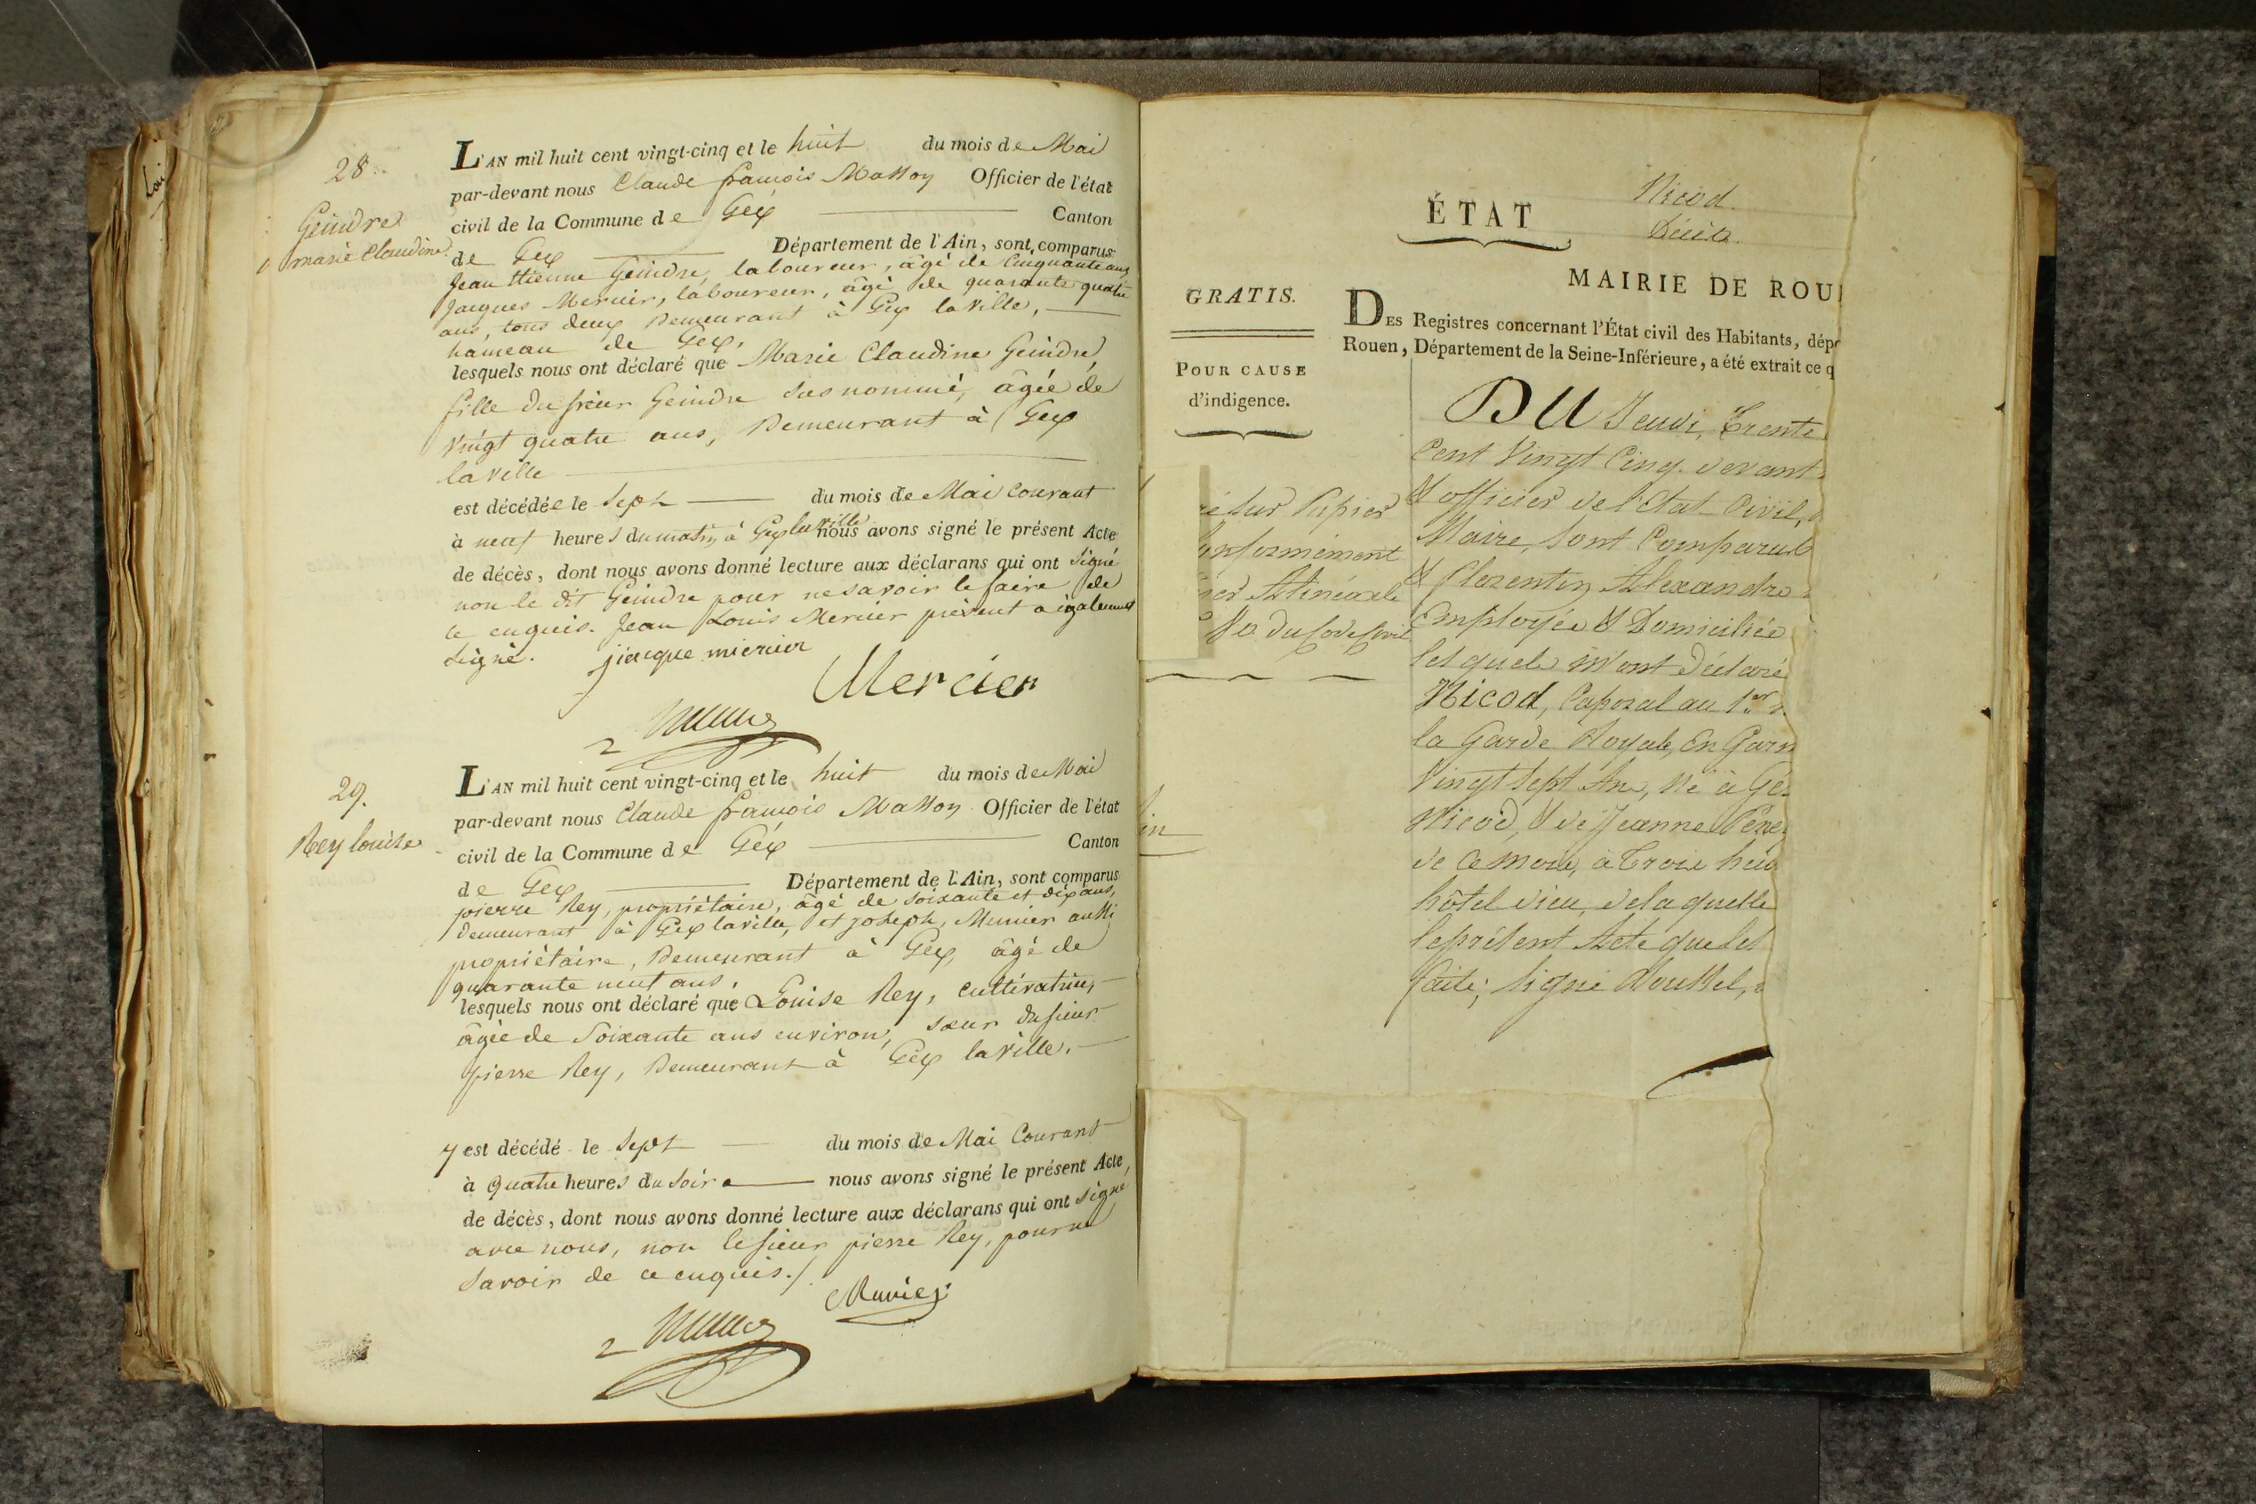 Loi
28
Geindre
marie Claudine
L'AN mil huit cent vingt-cinq et le huit du mois de Mai
par-devant nous Claude françois Masson Officier de l'état
civil de la Commune de Gex Canton
de Gex Département de l'Ain, sont comparus
Jean Etienne Geindre, laboureur, âgé de Cinquante ans
Jacques Mercier, laboureur, âgé de quarante quatre
ans, tous deux Demeurant à Gex la ville,
hameau de Gex,
lesquels nous ont déclaré que Marie Claudine Geindre,
fille du sieur Geindre sus nommé, âgée de
vingt quatre ans, Demeurant à Gex
la ville
est décédée le Sept du mois de Mai Courant
à neuf heures du matin, à Gex la ville nous avons signé le présent Acte
de décès, dont nous avons donné lecture aux déclarans qui ont signé
non le dit Geindre pour ne savoir le faire de
ce enquis. Jean Louis Mercier présent a également
signé. jiacque miercier
Mercier
29.
Rey louise
L'AN mil huit cent vingt-cinq et le huit du mois de Mai
par-devant nous Claude françois Masson Officier de l'état
civil de la Commune de Géx Canton
de Gex Département de l'Ain, sont comparus
pierre Rey, propriétaire, âgé de soixante et dix ans,
demeurant à Gex la ville, et joseph Munier aussi
propriétaire, Demeurant à Gex, âgé de
quarante neuf ans,
lesquels nous ont déclaré que Louise Rey, cultivatrice,
âgée de Soixante ans environ, sœur du sieur
pierre Rey, Demeurant à Gex la ville.
y est décédé le Sept du mois de Mai Courant
à quatre heures du soir nous avons signé le présent Acte,
de décès, dont nous avons donné lecture aux déclarans qui ont signé
avec nous, non le sieur pierre Rey, pour ne
savoir de ce enquis./.
Munier
Nicod.
Décès.
ÉTAT
MAIRIE DE ROU
GRATIS.
POUR CAUSE
d'indigence.
DES Registres concernant l'État civil des Habitants, dép
Rouen, Département de la Seine-Inférieure, a été extrait ce q
DU Jeudi, Trente
Cent Vingt Cinq. devant
& officier de l'Etat Civil,
Maire, Sont Comparus
& Florentin Alexandre
Employés & Domiciliés
lesquels m'ont Déclaré
Nicod, Caporal au 1er
la Garde Royale, En Garn
Vingt Sept Ans, Né à Ge
Nicod, & de Jeanne Pene
de ce mois, à Trois heu
hôtel dieu, de laquelle
le présent Acte que les
faite; Signé Roussel,
ré sur Papier
onformément
er Alinéa de
80 du Code Civil
in